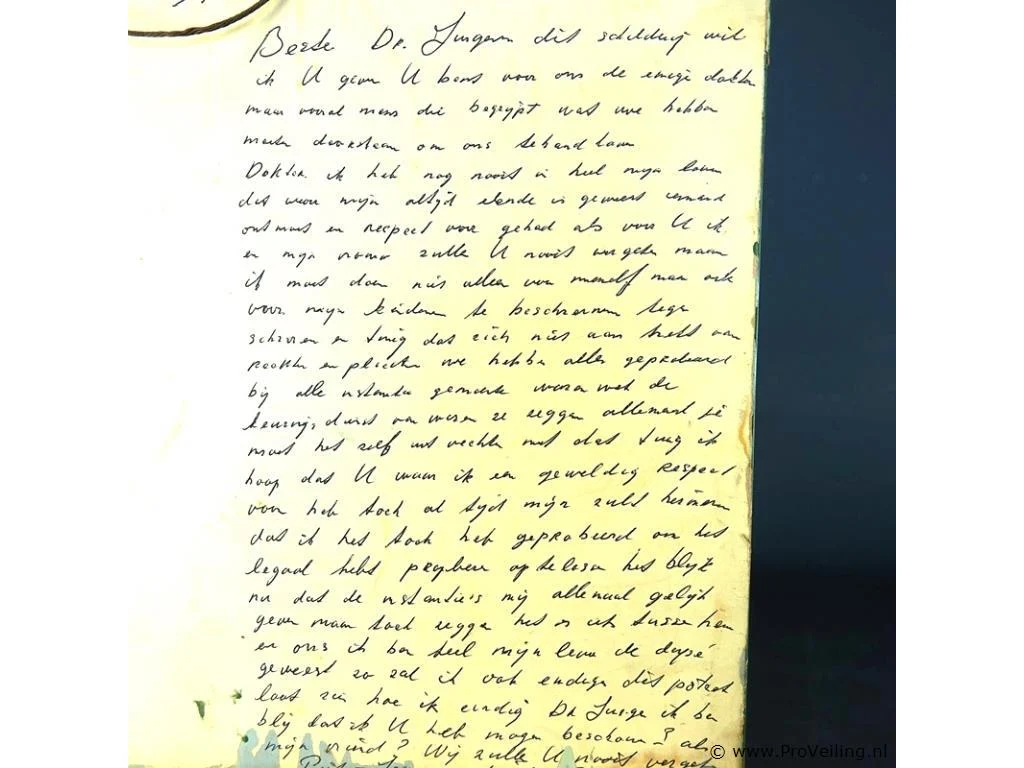 Beste Dr. Jurgen dit schilderij wil
ik U geven U bent voor ons de enige dokter
maar vooral mens die begrijpt wat we hebben
moeten doorstaan om ons
Dokter ik heb nog nooit in heel mijn leven
dat voor mijn altijd elende is geweest iemand
ontmoet en respect voor gehad als voor U ik
en mijn vrouw zulle U nooit vergeten maar
ik moet doen niet alleen voor menself maar ook
voor mijn kinderen te beschermen tege
schroren en tuig dat zich niet aan trekt van
rechten en plichten we hebben alles geprobeerd
bij alle instantie gemeente waren met de
keurings dienst van waren ze zeggen allemaal je
moet het zelf uit vechten met dat tuig ik
hoop dat U waar ik een geweldig respect
voor heb toch al tijd mijn zult herineren
dat ik het toch heb geprobeerd om het
legaal hebt probleem op te lossen het blijkt
nu dat de instantie's mij allemaal gelijk
geven maar toch zeggen het is iets tussen hem
en ons ik ben heel mijn leven de dupé
geweest zo zal ik ook eindige dit potret
laat zien hoe ik eindig Dr Jurge ik ben
blij dat ik U heb mogen beschouwen als
mijn vriend? Wij zulle U nooit vergeten
© www.ProVeiling.nl